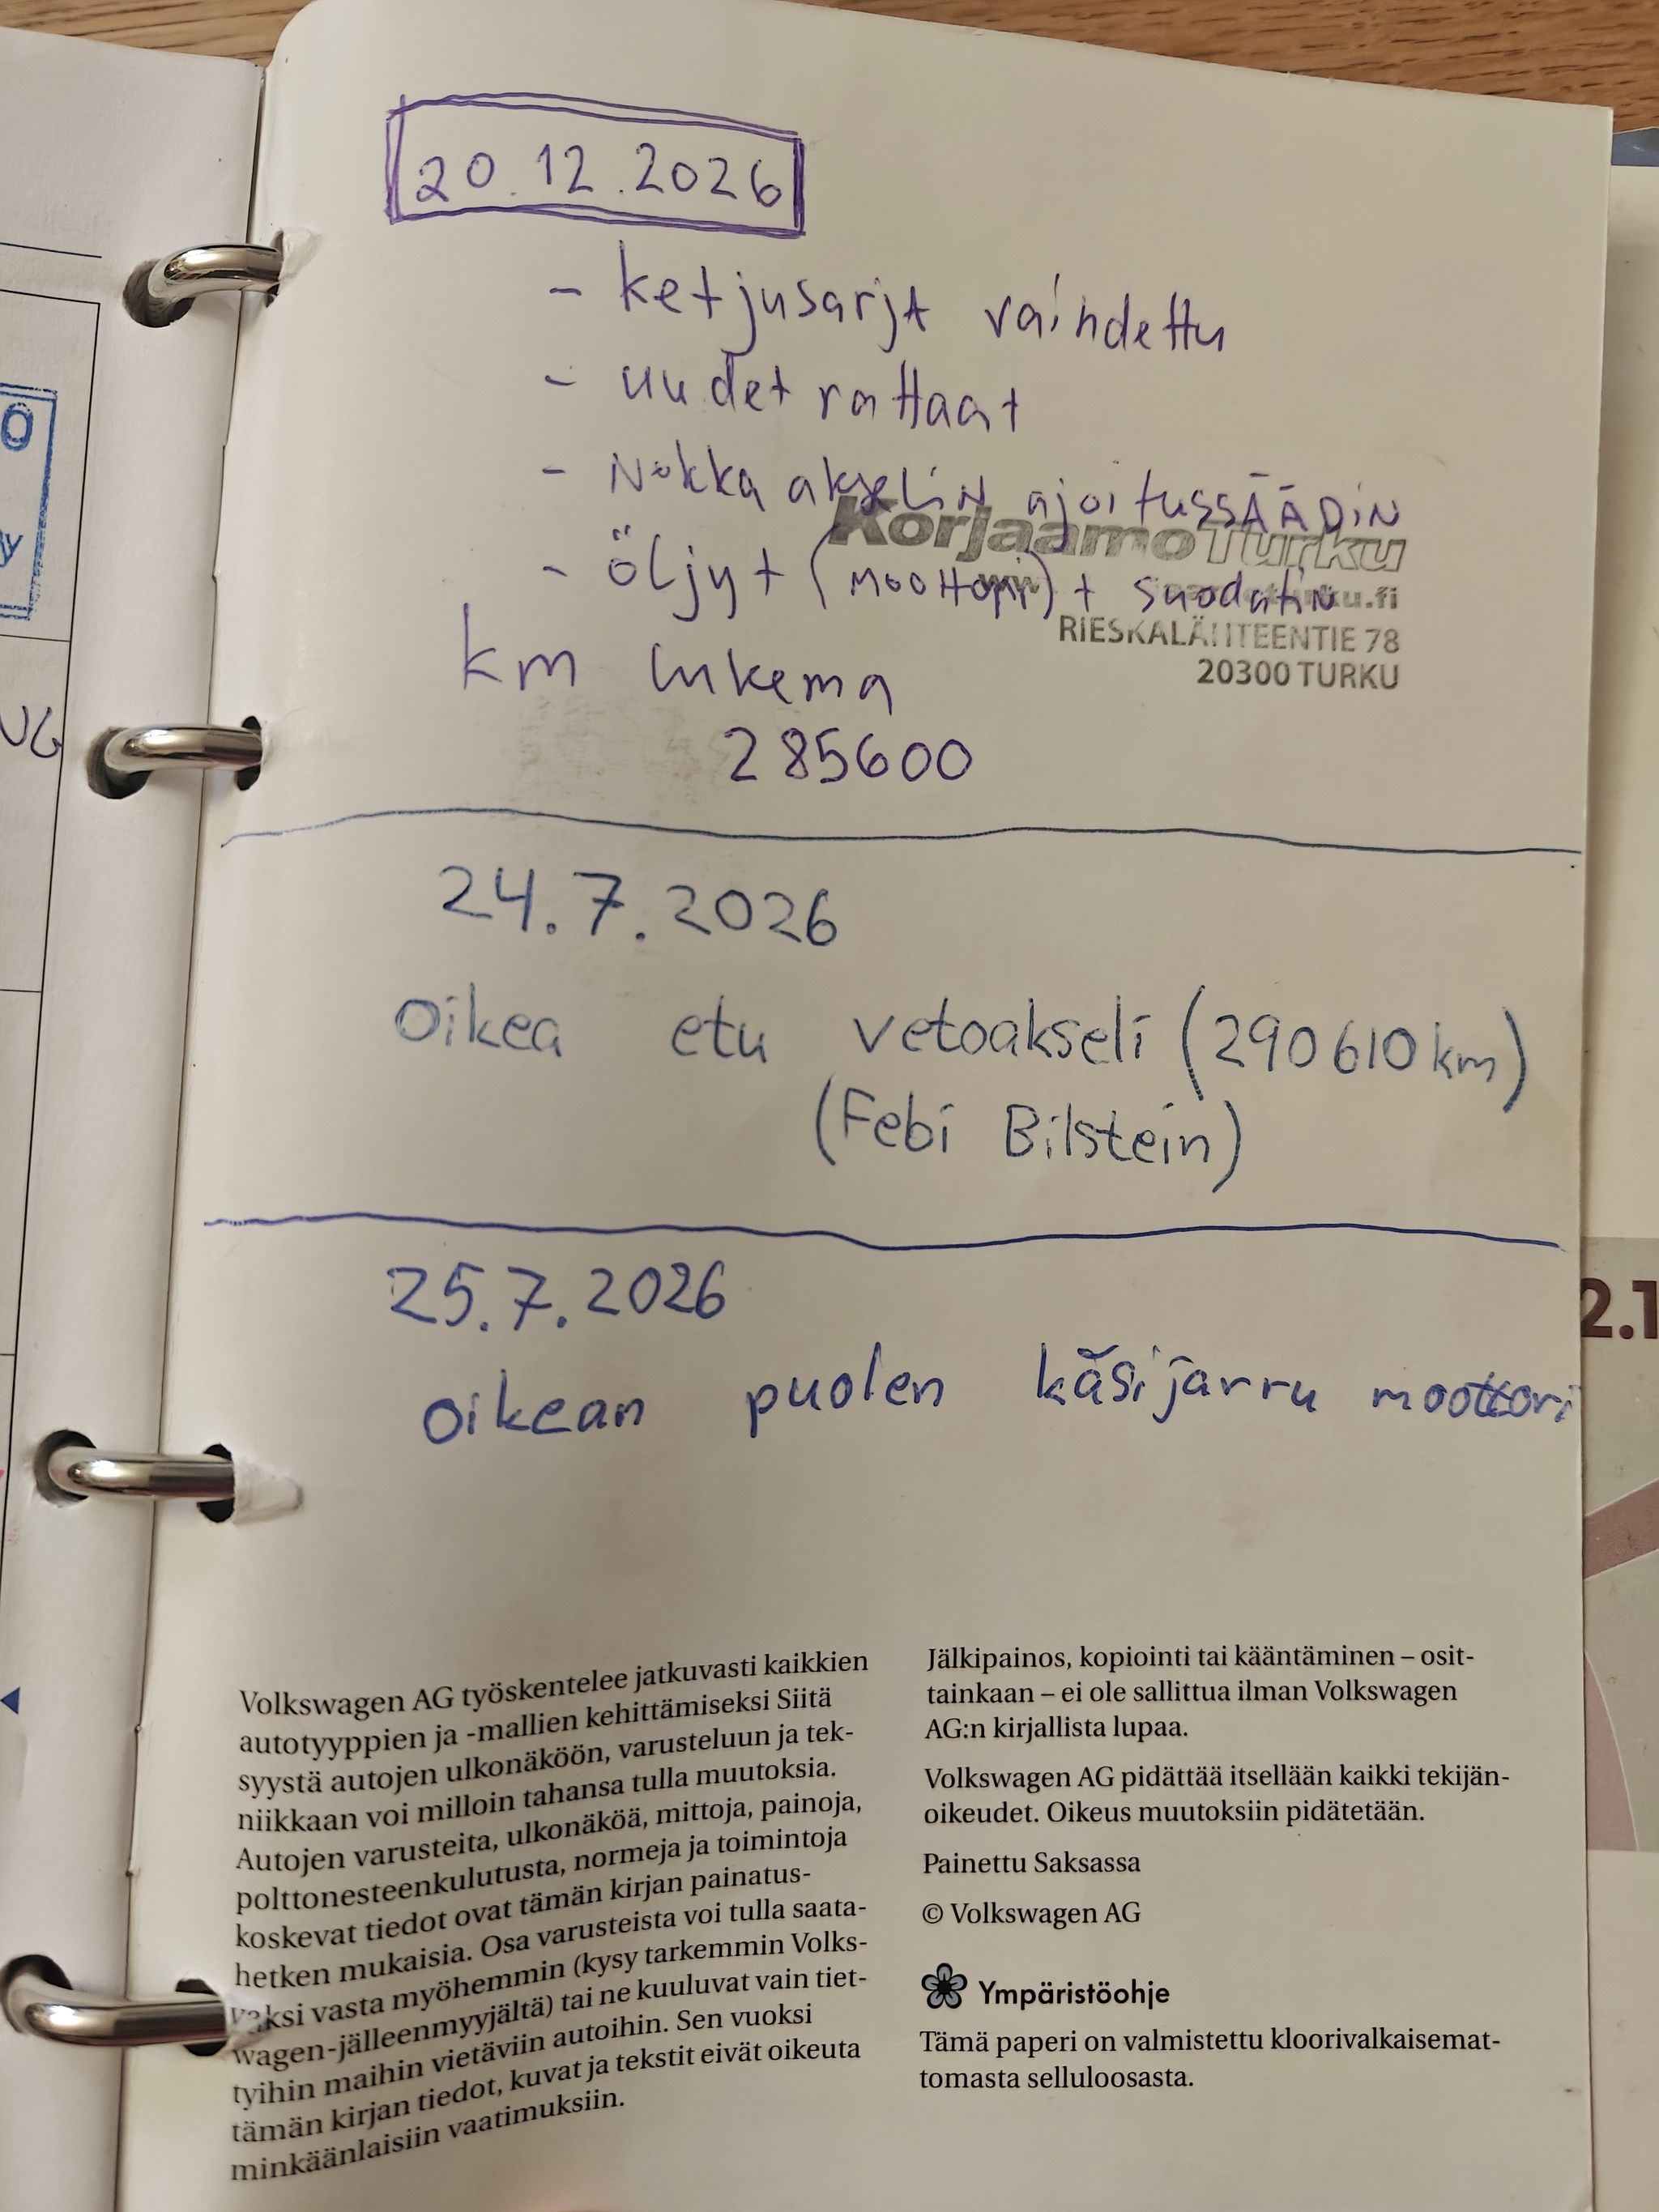 20.12.2026
- ketjusarja vaihdettu
- uudet rattaat
- Nokka akselin ajoitussÄÄDiN
- öljyt (moottori) + suodatin
Korjaamo Turku
RIESKALÄHTEENTIE 78
20300 TURKU
km lukema
285600
24.7.2026
Oikea etu vetoakseli (290610km)
(Febi Bilstein)
25.7.2026
oikean puolen käsijarru moottori
Volkswagen AG työskentelee jatkuvasti kaikkien
autotyyppien ja -mallien kehittämiseksi Siitä
syystä autojen ulkonäköön, varusteluun ja tek-
niikkaan voi milloin tahansa tulla muutoksia.
Autojen varusteita, ulkonäköä, mittoja, painoja,
polttonesteenkulutusta, normeja ja toimintoja
koskevat tiedot ovat tämän kirjan painatus-
hetken mukaisia. Osa varusteista voi tulla saata-
vaksi vasta myöhemmin (kysy tarkemmin Volks-
wagen-jälleenmyyjältä) tai ne kuuluvat vain tiet-
tyihin maihin vietäviin autoihin. Sen vuoksi
tämän kirjan tiedot, kuvat ja tekstit eivät oikeuta
minkäänlaisiin vaatimuksiin.
Jälkipainos, kopiointi tai kääntäminen – osit-
tainkaan – ei ole sallittua ilman Volkswagen
AG:n kirjallista lupaa.
Volkswagen AG pidättää itsellään kaikki tekijän-
oikeudet. Oikeus muutoksiin pidätetään.
Painettu Saksassa
© Volkswagen AG
Ympäristöohje
Tämä paperi on valmistettu kloorivalkaisemat-
tomasta selluloosasta.
2.1